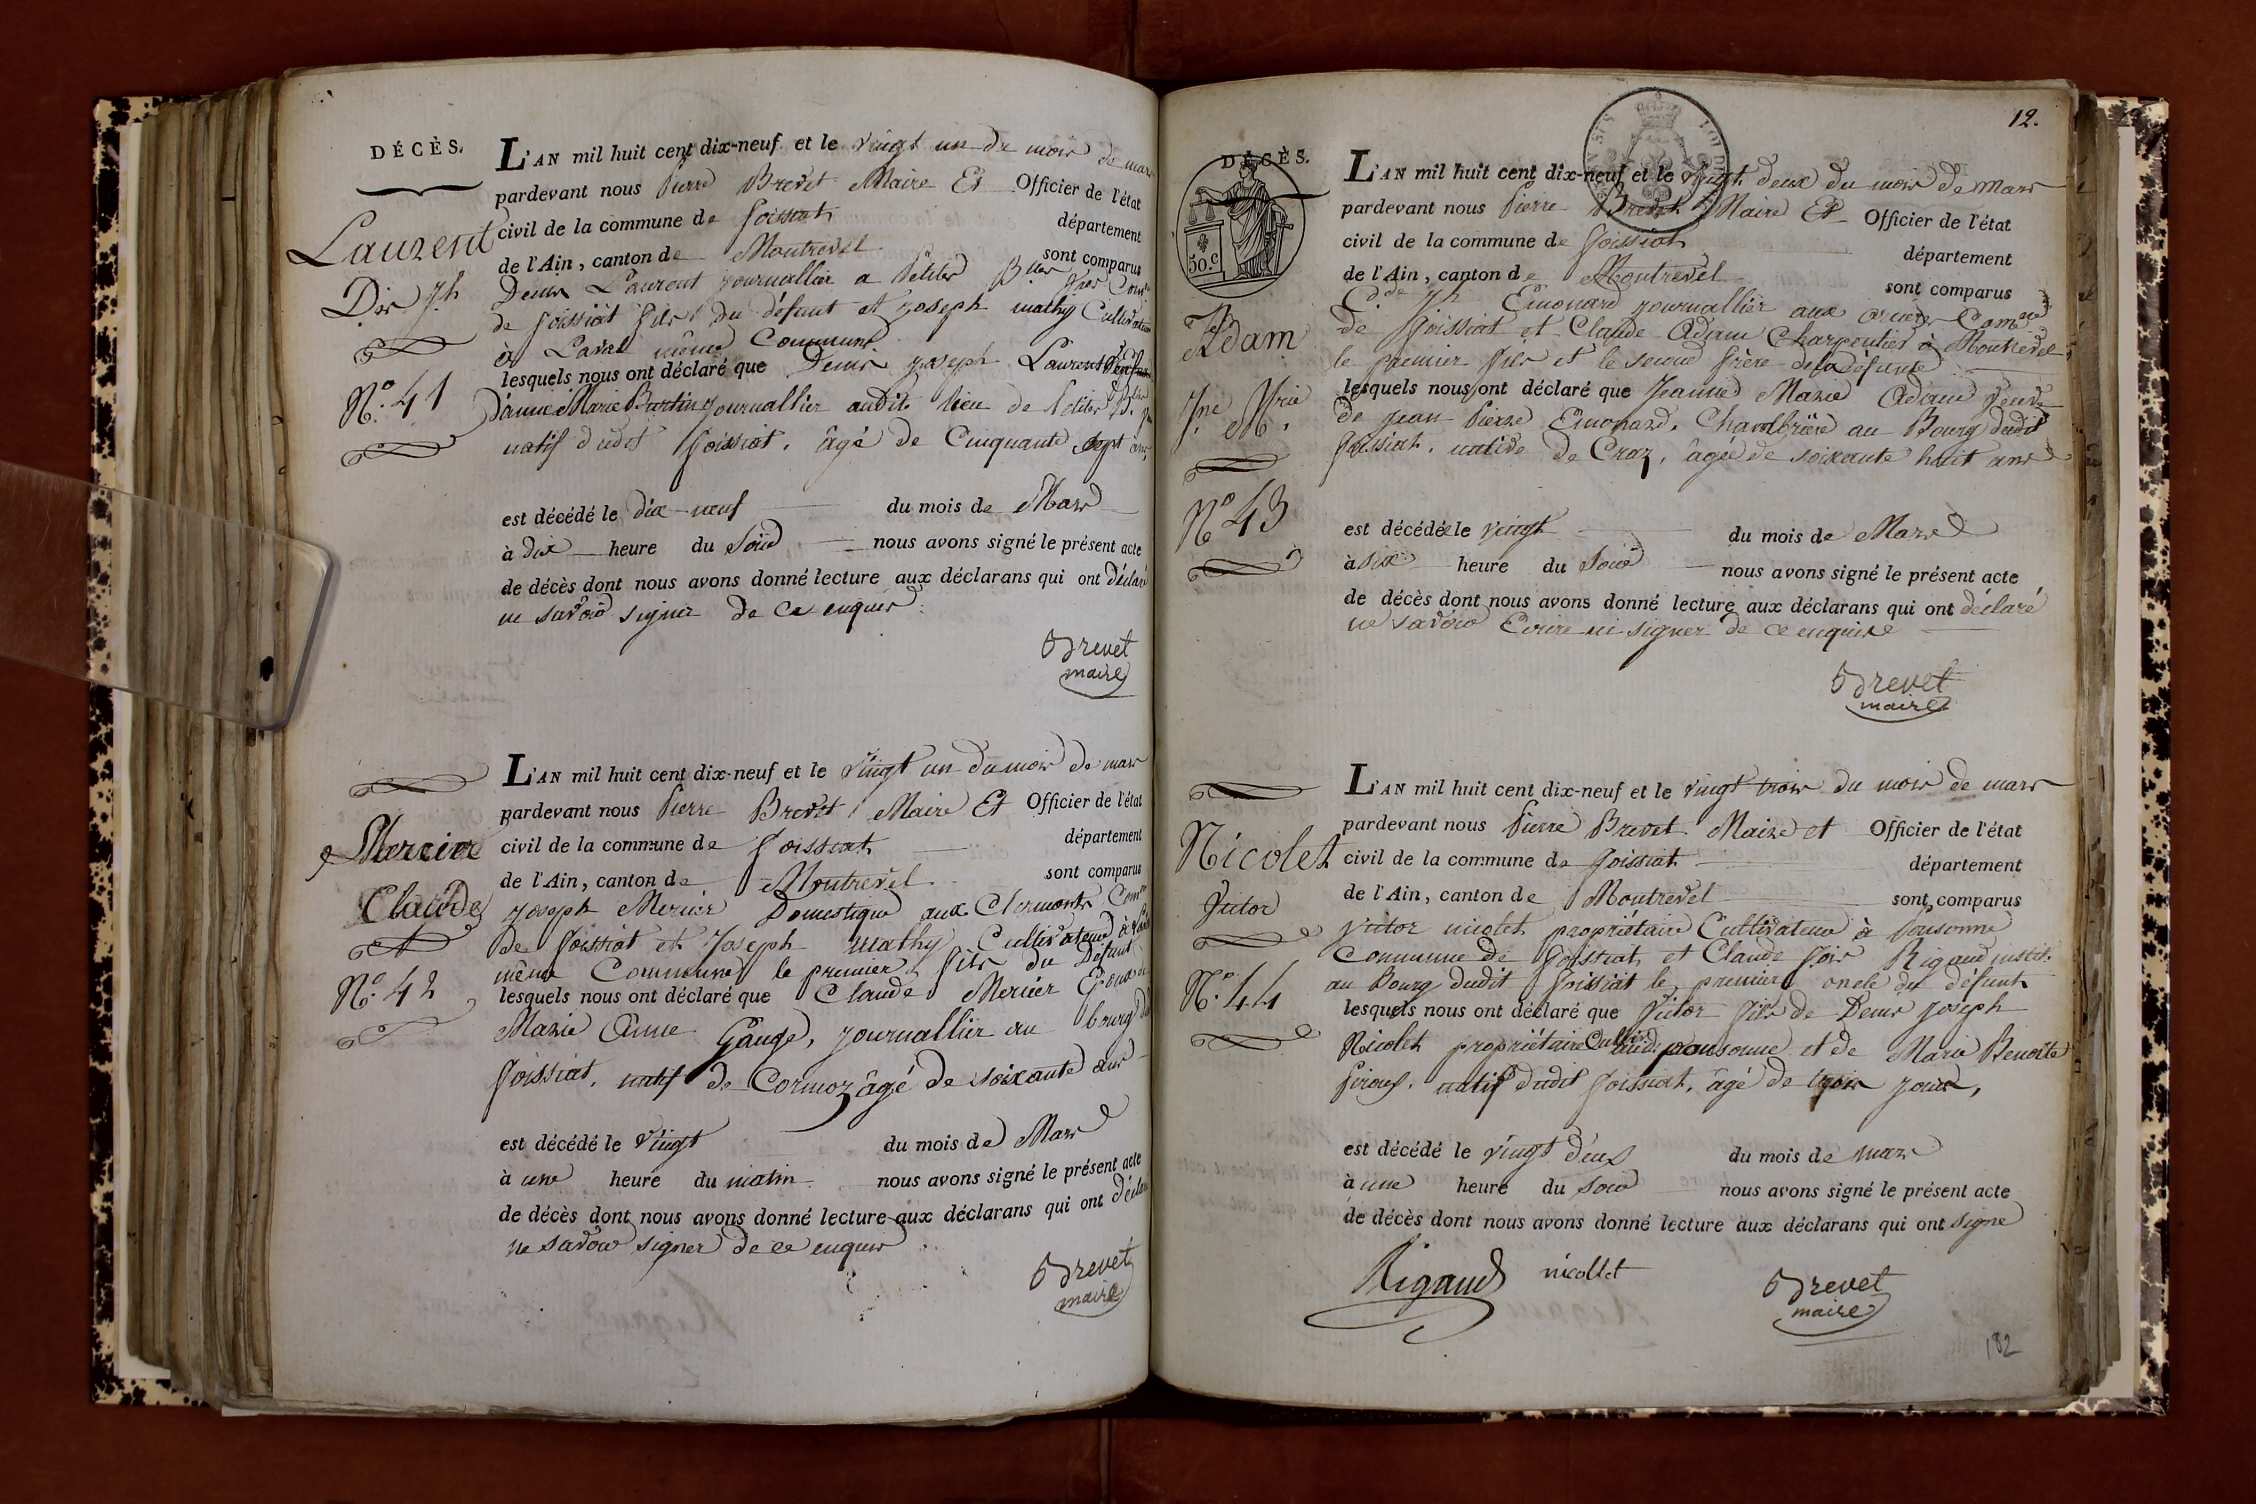 DÉCÈS.
Laurent
Dis Jh
N.o 41
L'AN mil huit cent dix-neuf et le vingt un du mois de mars
pardevant nous Pierre Brevet Maire Et Officier de l'état
civil de la commune de foissiat
département
de l'Ain, canton de Montrevel
sont comparus
Denis Laurent journallier a
de foissiat fils du défunt et joseph mathy Cultivateur
à Laval même Commune
lesquels nous ont déclaré que Denis joseph Laurent
d'anne Marie journallier audit lieu de
natif dudit foissiat, âgé de Cinquante sept ans,
est décédé le dix-neuf du mois de Mars
à dix heure du Soir nous avons signé le présent acte
de décès dont nous avons donné lecture aux déclarans qui ont déclaré
ne savoir signer de ce enquis.
Brevet
maire
Mercier
Claude
N.o 42
L'AN mil huit cent dix-neuf et le vingt un du mois de mars
pardevant nous Pierre Brevet Maire Et Officier de l'état
civil de la commune de foissiat
département
de l'Ain, canton de Montrevel
sont comparus
joseph Mercier Domestique aux Clermonts Comne
de foissiat et Joseph mathy Cultivateur à
même Commune le premier fils du Défunt
lesquels nous ont déclaré que Claude Mercier Epoux de
Marie Anne Gauge, journallier au bourg
foissiat, natif de Cormoz âgé de soixante ans
est décédé le vingt du mois de Mars
à une heure du matin nous avons signé le présent acte
de décès dont nous avons donné lecture aux déclarans qui ont déclaré
ne savoir signer de ce enquis
Brevet
maire
12.
DÉCÈS.
50.c
Adam
Jne Mrie
No 43
L'AN mil huit cent dix-neuf et le vingt deux du mois de mars
pardevant nous Pierre Brevet Maire Et Officier de l'état
civil de la commune de foissiat
département
de l'Ain, canton de Montrevel
sont comparus
Jh Emonard journallier aux Comne
de foissiat et Claude Adam Charpentier à Montrevel
le premier fils et le second frère de la défunte
lesquels nous ont déclaré que Jeanne Marie Adam veuve
de jean Pierre Emonard, Chambrière au Bourg dudit
foissiat, native de Craz, âgée de soixante huit ans
est décédée le vingt du mois de Mars
à six heure du Soir nous avons signé le présent acte
de décès dont nous avons donné lecture aux déclarans qui ont déclaré
ne savoir Ecrire ni signer de ce enquis
Brevet
maire
Nicolet
Victor
N.o 44
L'AN mil huit cent dix-neuf et le vingt trois du mois de mars
pardevant nous Pierre Brevet Maire et Officier de l'état
civil de la commune de foissiat
département
de l'Ain, canton de Montrevel
sont comparus
victor nicolet propriétaire Cultivateur à Sousonne
Commune de foissiat, et Claude fois Rigaud instit.
au Bourg dudit foissiat le premier oncle du défunt
lesquels nous ont déclaré que Victor fils de Denis joseph
Nicolet propriétaire Cultiv. et de Marie Benoite
natif dudit foissiat, âgé de trois jours,
est décédé le vingt deux du mois de mars
à une heure du soir nous avons signé le présent acte
de décès dont nous avons donné lecture aux déclarans qui ont signé
Rigaud nicollet Brevet
maire
182